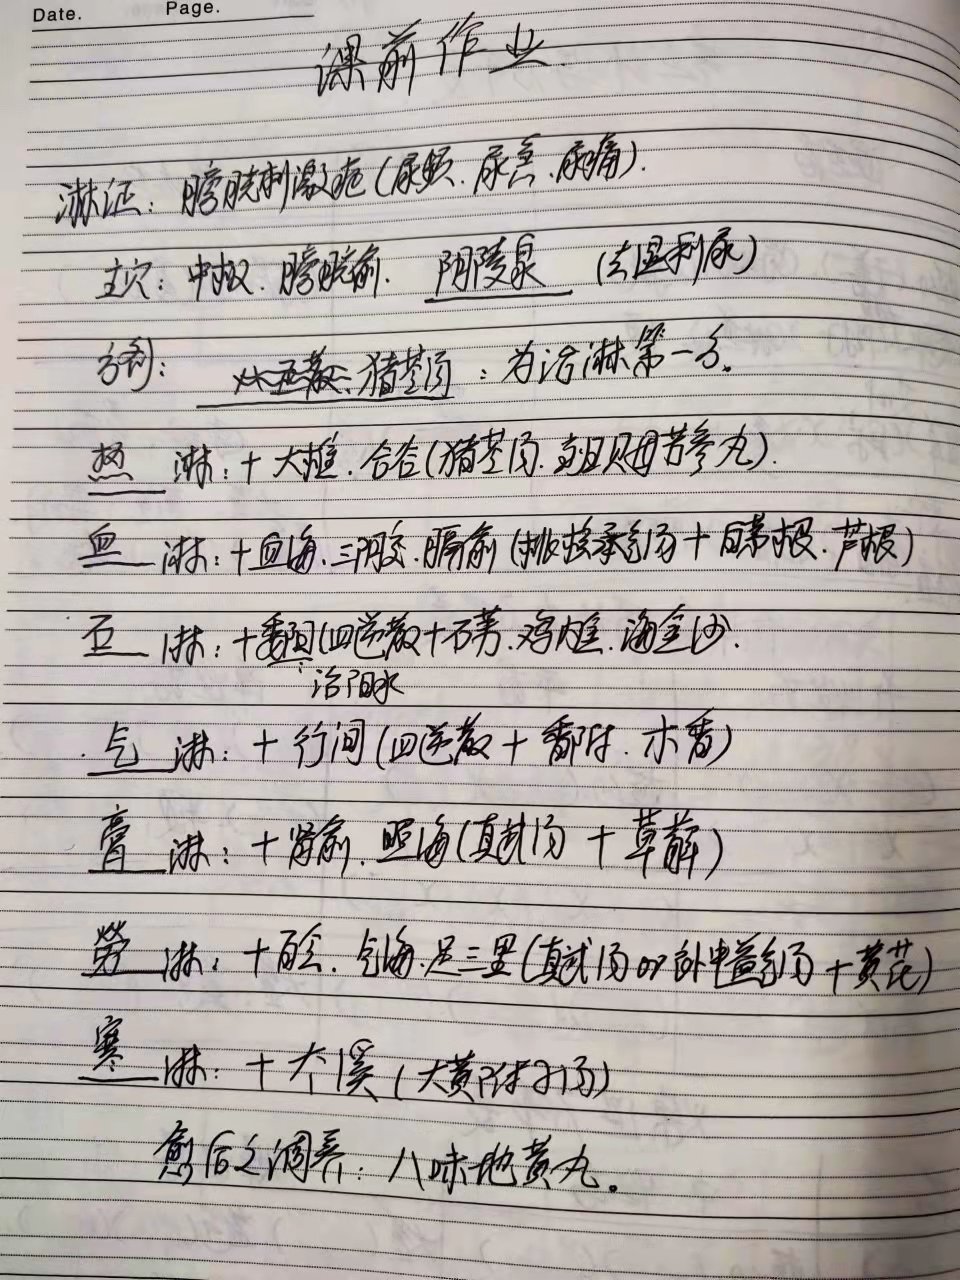 Date. Page.
课前作业
淋证：膀胱刺激症(尿频、尿急、尿痛).
主穴：中极、膀胱俞、阴陵泉 (去湿利尿)
方剂： 猪苓汤：为治淋第一方。
热淋：+大椎、合谷(猪苓汤、当归贝母苦参丸).
血淋：+血海、三阴交、膈俞(桃核承气汤+白茅根、芦根)
石淋：+委阳(四逆散+石苇、鸡内金、海金沙.
治阳水
气淋：+行间(四逆散+香附、木香)
膏淋：+肾俞、照海(真武汤+草薢)
劳淋：+百会、气海、足三里(真武汤or补中益气汤+黄芪)
寒淋：+太溪(大黄附子汤)
愈后之调养：八味地黄丸。